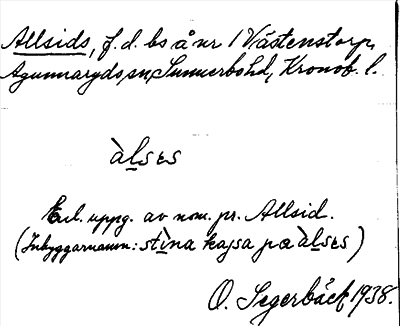 Allsids, f.d. bs å nr 1 Västenstorp,
Agunnaryds sn, Sunnerbo hd, Kronob. l.
àlses
Enl. uppg. av nom. pr. Allsid.
(Inbyggarnamn: stìna kajsa pæ àlses)
O. Segerbäck 1938.